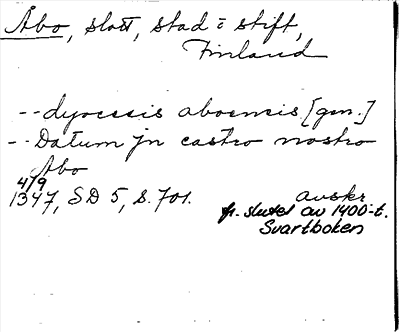 Åbo, slott, stad i stift,
Finland
-- dyocesis aboensis [gen.]
-- Datum jn castro nostro
Abo
4/9
1347, SD 5, s. 701.
avskr.
fr. slutet av 1400-t.
Svartboken